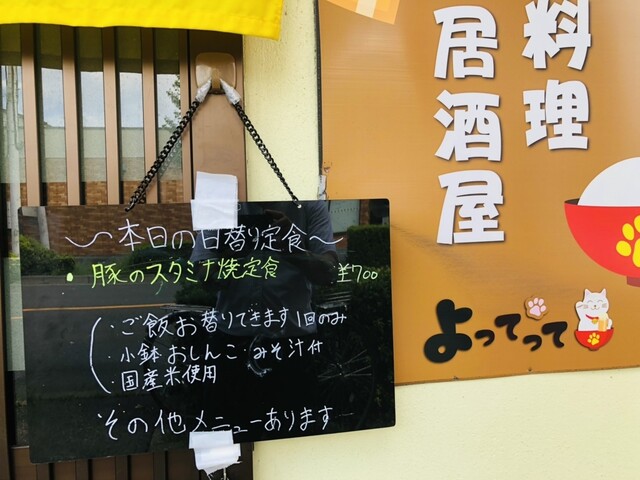 〜本日の日替り定食〜
・豚のスタミナ焼定食 ¥700
・ご飯お替りできます1回のみ
・小鉢・おしんこ・みそ汁付
・国産米使用
その他メニューあります
料理
居酒屋
よってって